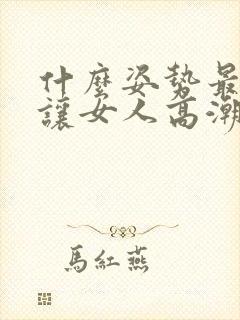 什麼姿勢最
讓女人高潮
馬紅燕